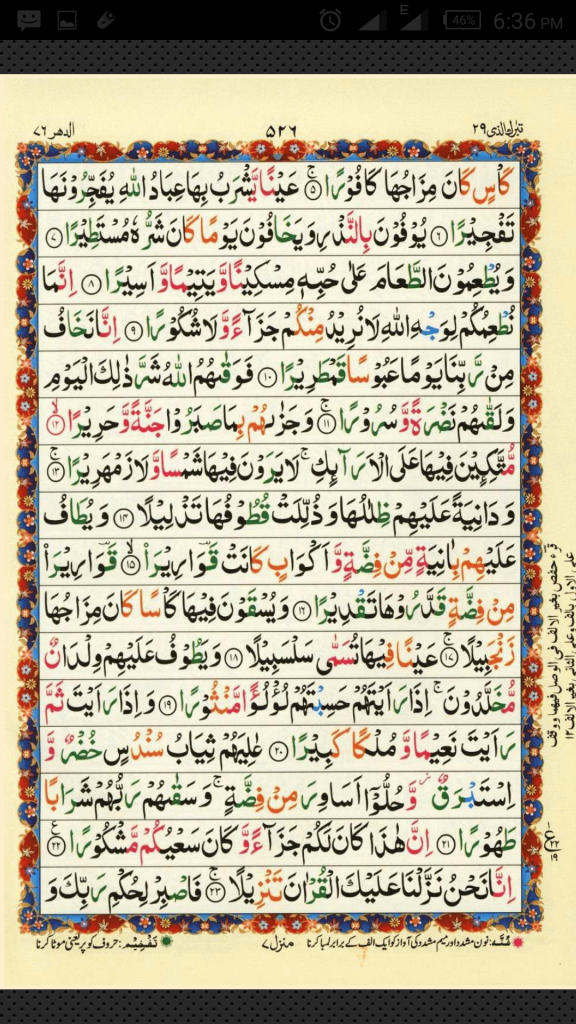 46% 6:36 PM
E
تبٰرك الذى ٢٩
٥٢٦
الدهر ٧٦
كَاْسٍ كَانَ مِزَاجُهَا كَافُوْرًا ۚ ٥ عَيْنًا يَّشْرَبُ بِهَا عِبَادُ اللّٰهِ يُفَجِّرُوْنَهَا
تَفْجِيْرًا ٦ يُوْفُوْنَ بِالنَّذْرِ وَيَخَافُوْنَ يَوْمًا كَانَ شَرُّهٗ مُسْتَطِيْرًا ٧
وَيُطْعِمُوْنَ الطَّعَامَ عَلٰى حُبِّهٖ مِسْكِيْنًا وَّيَتِيْمًا وَّاَسِيْرًا ٨ اِنَّمَا
نُطْعِمُكُمْ لِوَجْهِ اللّٰهِ لَا نُرِيْدُ مِنْكُمْ جَزَآءً وَّلَا شُكُوْرًا ٩ اِنَّا نَخَافُ
مِنْ رَّبِّنَا يَوْمًا عَبُوْسًا قَمْطَرِيْرًا ١٠ فَوَقٰىهُمُ اللّٰهُ شَرَّ ذٰلِكَ الْيَوْمِ
وَلَقّٰىهُمْ نَضْرَةً وَّسُرُوْرًا ۚ ١١ وَجَزٰىهُمْ بِمَا صَبَرُوْا جَنَّةً وَّحَرِيْرًا ۙ ١٢
مُّتَّكِـِٕيْنَ فِيْهَا عَلَى الْاَرَآئِكِ ۚ لَا يَرَوْنَ فِيْهَا شَمْسًا وَّلَا زَمْهَرِيْرًا ۚ ١٣
وَدَانِيَةً عَلَيْهِمْ ظِلٰلُهَا وَذُلِّلَتْ قُطُوْفُهَا تَذْلِيْلًا ١٤ وَيُطَافُ
عَلَيْهِمْ بِاٰنِيَةٍ مِّنْ فِضَّةٍ وَّاَكْوَابٍ كَانَتْ قَوَارِيْرَا۠ ۙ ١٥ قَوَارِيْرَا۠
مِنْ فِضَّةٍ قَدَّرُوْهَا تَقْدِيْرًا ١٦ وَيُسْقَوْنَ فِيْهَا كَاْسًا كَانَ مِزَاجُهَا
زَنْجَبِيْلًا ۚ ١٧ عَيْنًا فِيْهَا تُسَمّٰى سَلْسَبِيْلًا ١٨ وَيَطُوْفُ عَلَيْهِمْ وِلْدَانٌ
مُّخَلَّدُوْنَ ۚ اِذَا رَاَيْتَهُمْ حَسِبْتَهُمْ لُؤْلُؤًا مَّنْثُوْرًا ١٩ وَاِذَا رَاَيْتَ ثَمَّ
رَاَيْتَ نَعِيْمًا وَّمُلْكًا كَبِيْرًا ٢٠ عٰلِيَهُمْ ثِيَابُ سُنْدُسٍ خُضْرٌ وَّ
اِسْتَبْرَقٌ ۫ وَّحُلُّوْٓا اَسَاوِرَ مِنْ فِضَّةٍ ۚ وَسَقٰىهُمْ رَبُّهُمْ شَرَابًا
طَهُوْرًا ٢١ اِنَّ هٰذَا كَانَ لَكُمْ جَزَآءً وَّكَانَ سَعْيُكُمْ مَّشْكُوْرًا ۧ ٢٢
اِنَّا نَحْنُ نَزَّلْنَا عَلَيْكَ الْقُرْاٰنَ تَنْزِيْلًا ۚ ٢٣ فَاصْبِرْ لِحُكْمِ رَبِّكَ وَ
غُنّہ: نون مشدد اور میم مشدد کی آواز کو ایک الف کے برابر لمبا کرنا
منزل ٧
تفخیم: حروف کو پُر یعنی موٹا کرنا